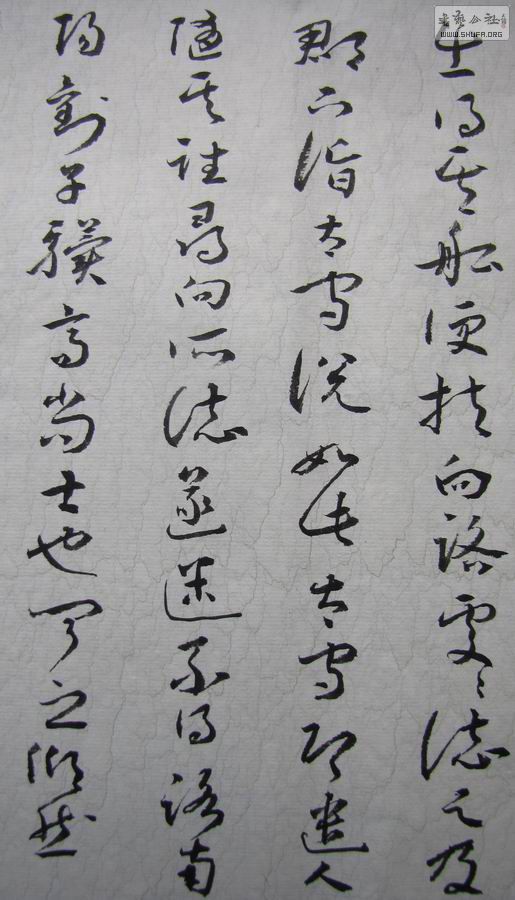 出得其船便扶向路處〻誌之及
郡下詣太守說如此太守即遣人
隨其往尋向所誌遂迷不得路南
陽劉子驥高尚士也聞之欣然
書藝公社
WWW.SHUFA.ORG